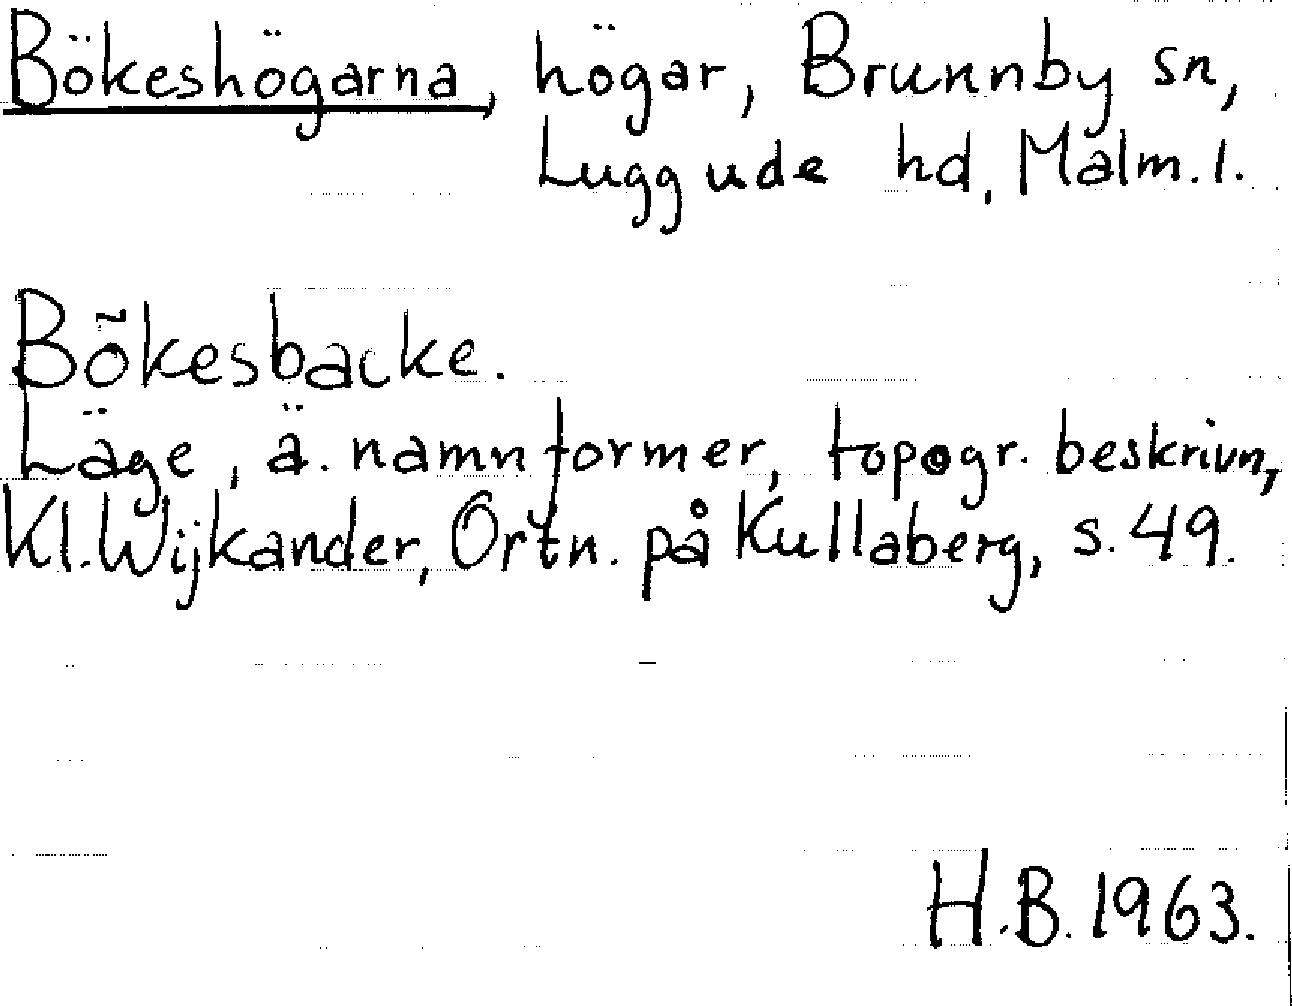 Bökeshögarna, högar, Brunnby sn,
Luggude hd, Malm.l.
Bõkesbacke.
Läge, ä. namnformer, topogr. beskrivn,
Kl.Wijkander, Ortn. på Kullaberg, s.49.
H.B.1963.